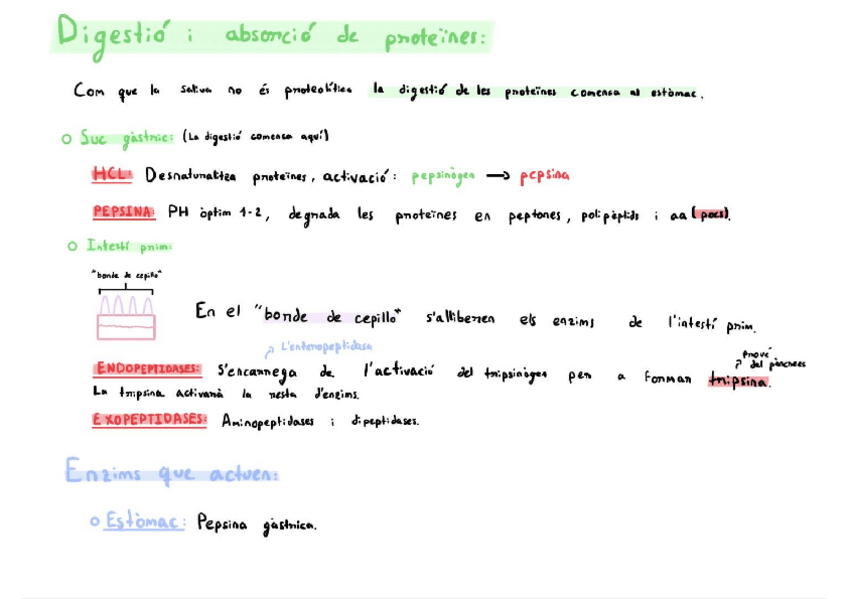 Digestió i absorció de proteïnes:
Com que la saliva no és proteolítica la digestió de les proteïnes comensa al estòmac.
Suc gàstric: (La digestió comensa aquí)
HCL: Desnaturalitza proteïnes, activació: pepsinògen → pepsina
PEPSINA: PH òptim 1-2, degrada les proteïnes en peptones, polipèptids i aa (pocs).
Intestí prim:
"borde de cepillo"
En el "borde de cepillo" s'alliberen els enzims de l'intestí prim.
L'enteropeptidasa
Prové del pàncrees
ENDOPEPTIDASES: S'encarrega de l'activació del tripsinògen per a formar tripsina.
La tripsina activarà la resta d'enzims.
EXOPEPTIDASES: Aminopeptidases i dipeptidases.
Enzims que actuen:
Estòmac: Pepsina gàstrica.